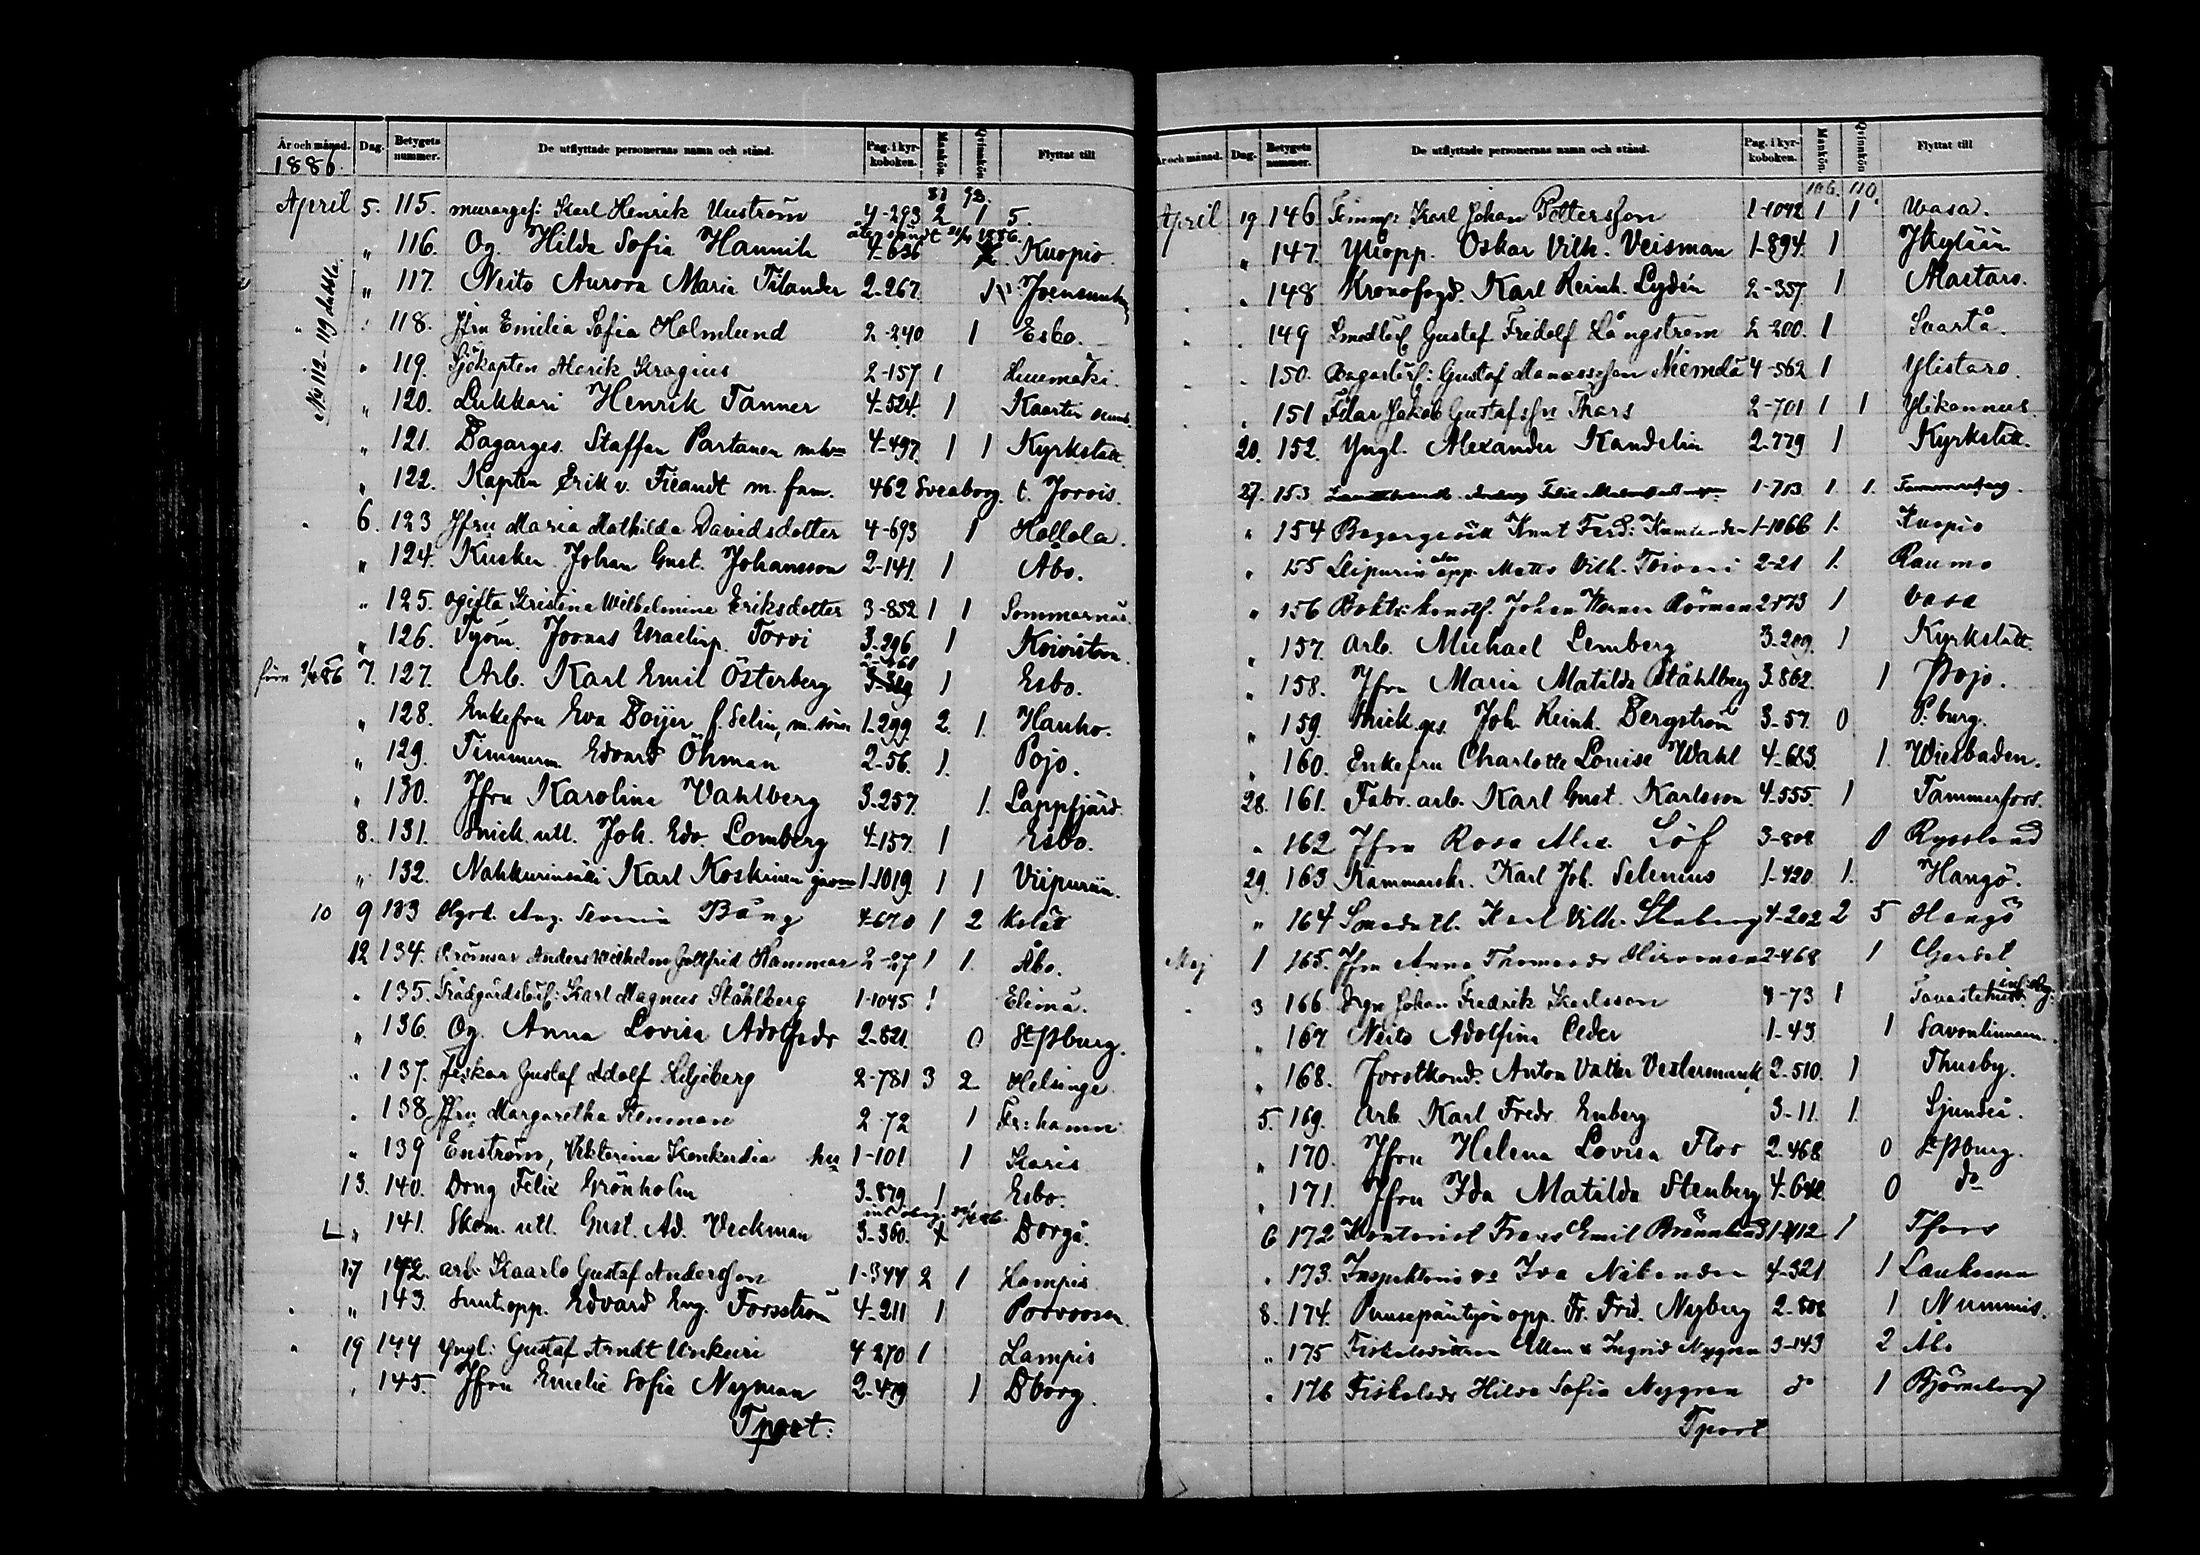 År och månad. Dag. Betygets nummer. De utflyttade personernas namn och stånd. Pag. i kyrkoboken. Mankön. Qvinnkön. Flyttat till
1886.
81 93.
April 5. 115. murargef: Karl Henrik 4-293 2 1 5.
återsändt 1886.
" 116. Og. Hilda Sofia 4-636 Kuopio.
" 117. Neito Aurora Maria Tilander 2-267. 1
No 112-119 dubbla.
118. Jfru Emilia Sofia Holmlund 2-240 1 Esbo.
" 119. Sjökapten Alerik Kragius 2-157 1
" 120. Lukkari Henrik Tanner 4-524. 1 Kaartin
" 121. Bagarges. Staffan Partanen 4-497. 1 1 Kyrkslätt.
" 122. Kapten Erik v. Fieandt m. fam. 462 Sveaborg. t. Jorois.
6. 123 Jfru Maria Mathilda Davidsdotter 4-693 1 Hollola.
" 124. Kusken Johan Gust. Johansson 2-141. 1 Åbo.
" 125. ogifta Kristina Wilhelmina Eriksdotter 3-852 1 1 Sommarnäs.
" 126. Työm. Joonas Israelinp. Torvi 3-296 1 Koiviston.
7. 127. Arb. Karl Emil Österberg 3-329 1 Esbo.
" 128. Enkefru Eva Boijer f. Selin, m. 1-299 2. 1. Hauho.
" 129. Timmerm. Edvard Öhman 2-56. 1. Pojo.
" 130. Jfru Karolina Vahlberg 3-257. 1. Lappfjärd.
8. 131. Snick. utl. Joh. Edv. Lomberg 4-157. 1 Esbo.
" 132. Nahkurinsälli Karl Koskinen 1-1019. 1 1 Viipuriin.
10 9 133 Aug. Bång 4-670 1 2
12 134. Anders Wilhelm Gottfrid Hammar 2-27 1 1. Åbo.
" 135. Trädgårdslärl: Karl Magnus Ståhlberg 1-1045 1 Elimä.
" 136. Og. Anna Lovisa Adolfsdr 2-521. 0 St Pburg.
" 137. Fiskar Gustaf Adolf Liljeberg 2-781 3 2 Helsinge
" 138 Jfru Margaretha Stenman 2-72 1 Fr:hamn.
" 139 Enström, Viktorina Konkordia 1-101 1 Karis
13. 140. Dräng Felix Grönholm 3-879 1 Esbo.
" 141. Skom. utl. Gust. Ad. Veckman 3-360. 1 Borgå.
17 142. arb. Kaarlo Gustaf Andersson 1-344 2 1 Lampis
" 143. Suut. opp. Edvard Eug. Forsström 4-211 1 Porvoosen.
" 19 144 Yngl: Gustaf Arndt Unkuri 4-270 1 Lampis
" 145. Jfru Emelie Sofia Nyman 2-479 1 Dborg.
Tport:
År och månad. Dag. Betygets nummer. De utflyttade personernas namn och stånd. Pag. i kyrkoboken. Mankön. Qvinnkön. Flyttat till
106. 110.
April 19 146 Timmp: Karl Johan Pettersson 1-1092 1 1 Wasa.
" 147. Oskar Vilh. Veisman 1-894. 1
" 148 Kronofogd. Karl Reinh. Lydén 2-357 1
" 149 Smedlärl Gustaf Fridolf Långström 2-200. 1 Svartå.
" 150. Bagarlärl: Gustaf Manassesson Niemelä 4-562 1 Ylistaro.
" 151 Jakob Gustafsson Thars 2-701 1 1 Ylikannus.
20. 152. Yngl. Alexander Kandelin 2-779 1 Kyrkslätt.
27. 153 1-703 1. 1.
" 154 Knut Ferd: 1-1066 1. Kuopio
" 155 Leipurin opp. Matts Vilh. Toivari 2-21 1. Raumo
" 156 Johan Werner Körman 2-773 1 Vasa
" 157. Arb. Michael Lemberg 3-209. 1 Kyrkslätt.
" 158. Jfru Maria Matilda Ståhlberg 3-862. 1 Pojo.
" 159. Snick. ges. Joh. Reinh. Bergström 3-57. 0 P:burg.
" 160. Enkefru Charlotte Louise Wahl 4-683. 1. Wiesbaden.
28. 161. Fabr. arb. Karl Gust. Karlsson 4-555. 1 Tammerfors.
" 162 Jfru Rosa Alex. Löf 3-808 0 Ryssland
29. 163 Kammarskr. Karl Joh. Selenius 1-420 1. Hangö.
" 164 Karl Vilh. Stenberg 4-202 2 5 Hangö
Maj 1 165. Jfru Anna Thomasdr Hirvonen 2-468 1
3 166. Johan Fredrik Karlsson 4-73 1
" 167 Neito Adolfina Ceder 1-43. 1 Savonlinnaan.
" 168. Forstkond. Anton Valter Vestermarck 2-510. 1 Thusby.
5. 169. Arb. Karl Fredr. Enberg 3-11. 1. Sjundeå.
" 170. Jfru Helena Lovisa Flor 2-468 0 St Pburg.
" 171. Jfru Ida Matilda Stenberg 4-642. 0 do
6 172 Kontorist Frans Emil Brännlund 1-412 1 Tfors
" 173. Ida 4-321. 1
8. 174. Puusepäntyön opp. Fr. Frid. Nyberg 2-808 1 Nummis.
" 175 Ellen & Ingrid Nygren 3-143 2 Åbo
" 176 Fiskalsdr Hilda Sofia Nygren do 1 Björneborg
Tport